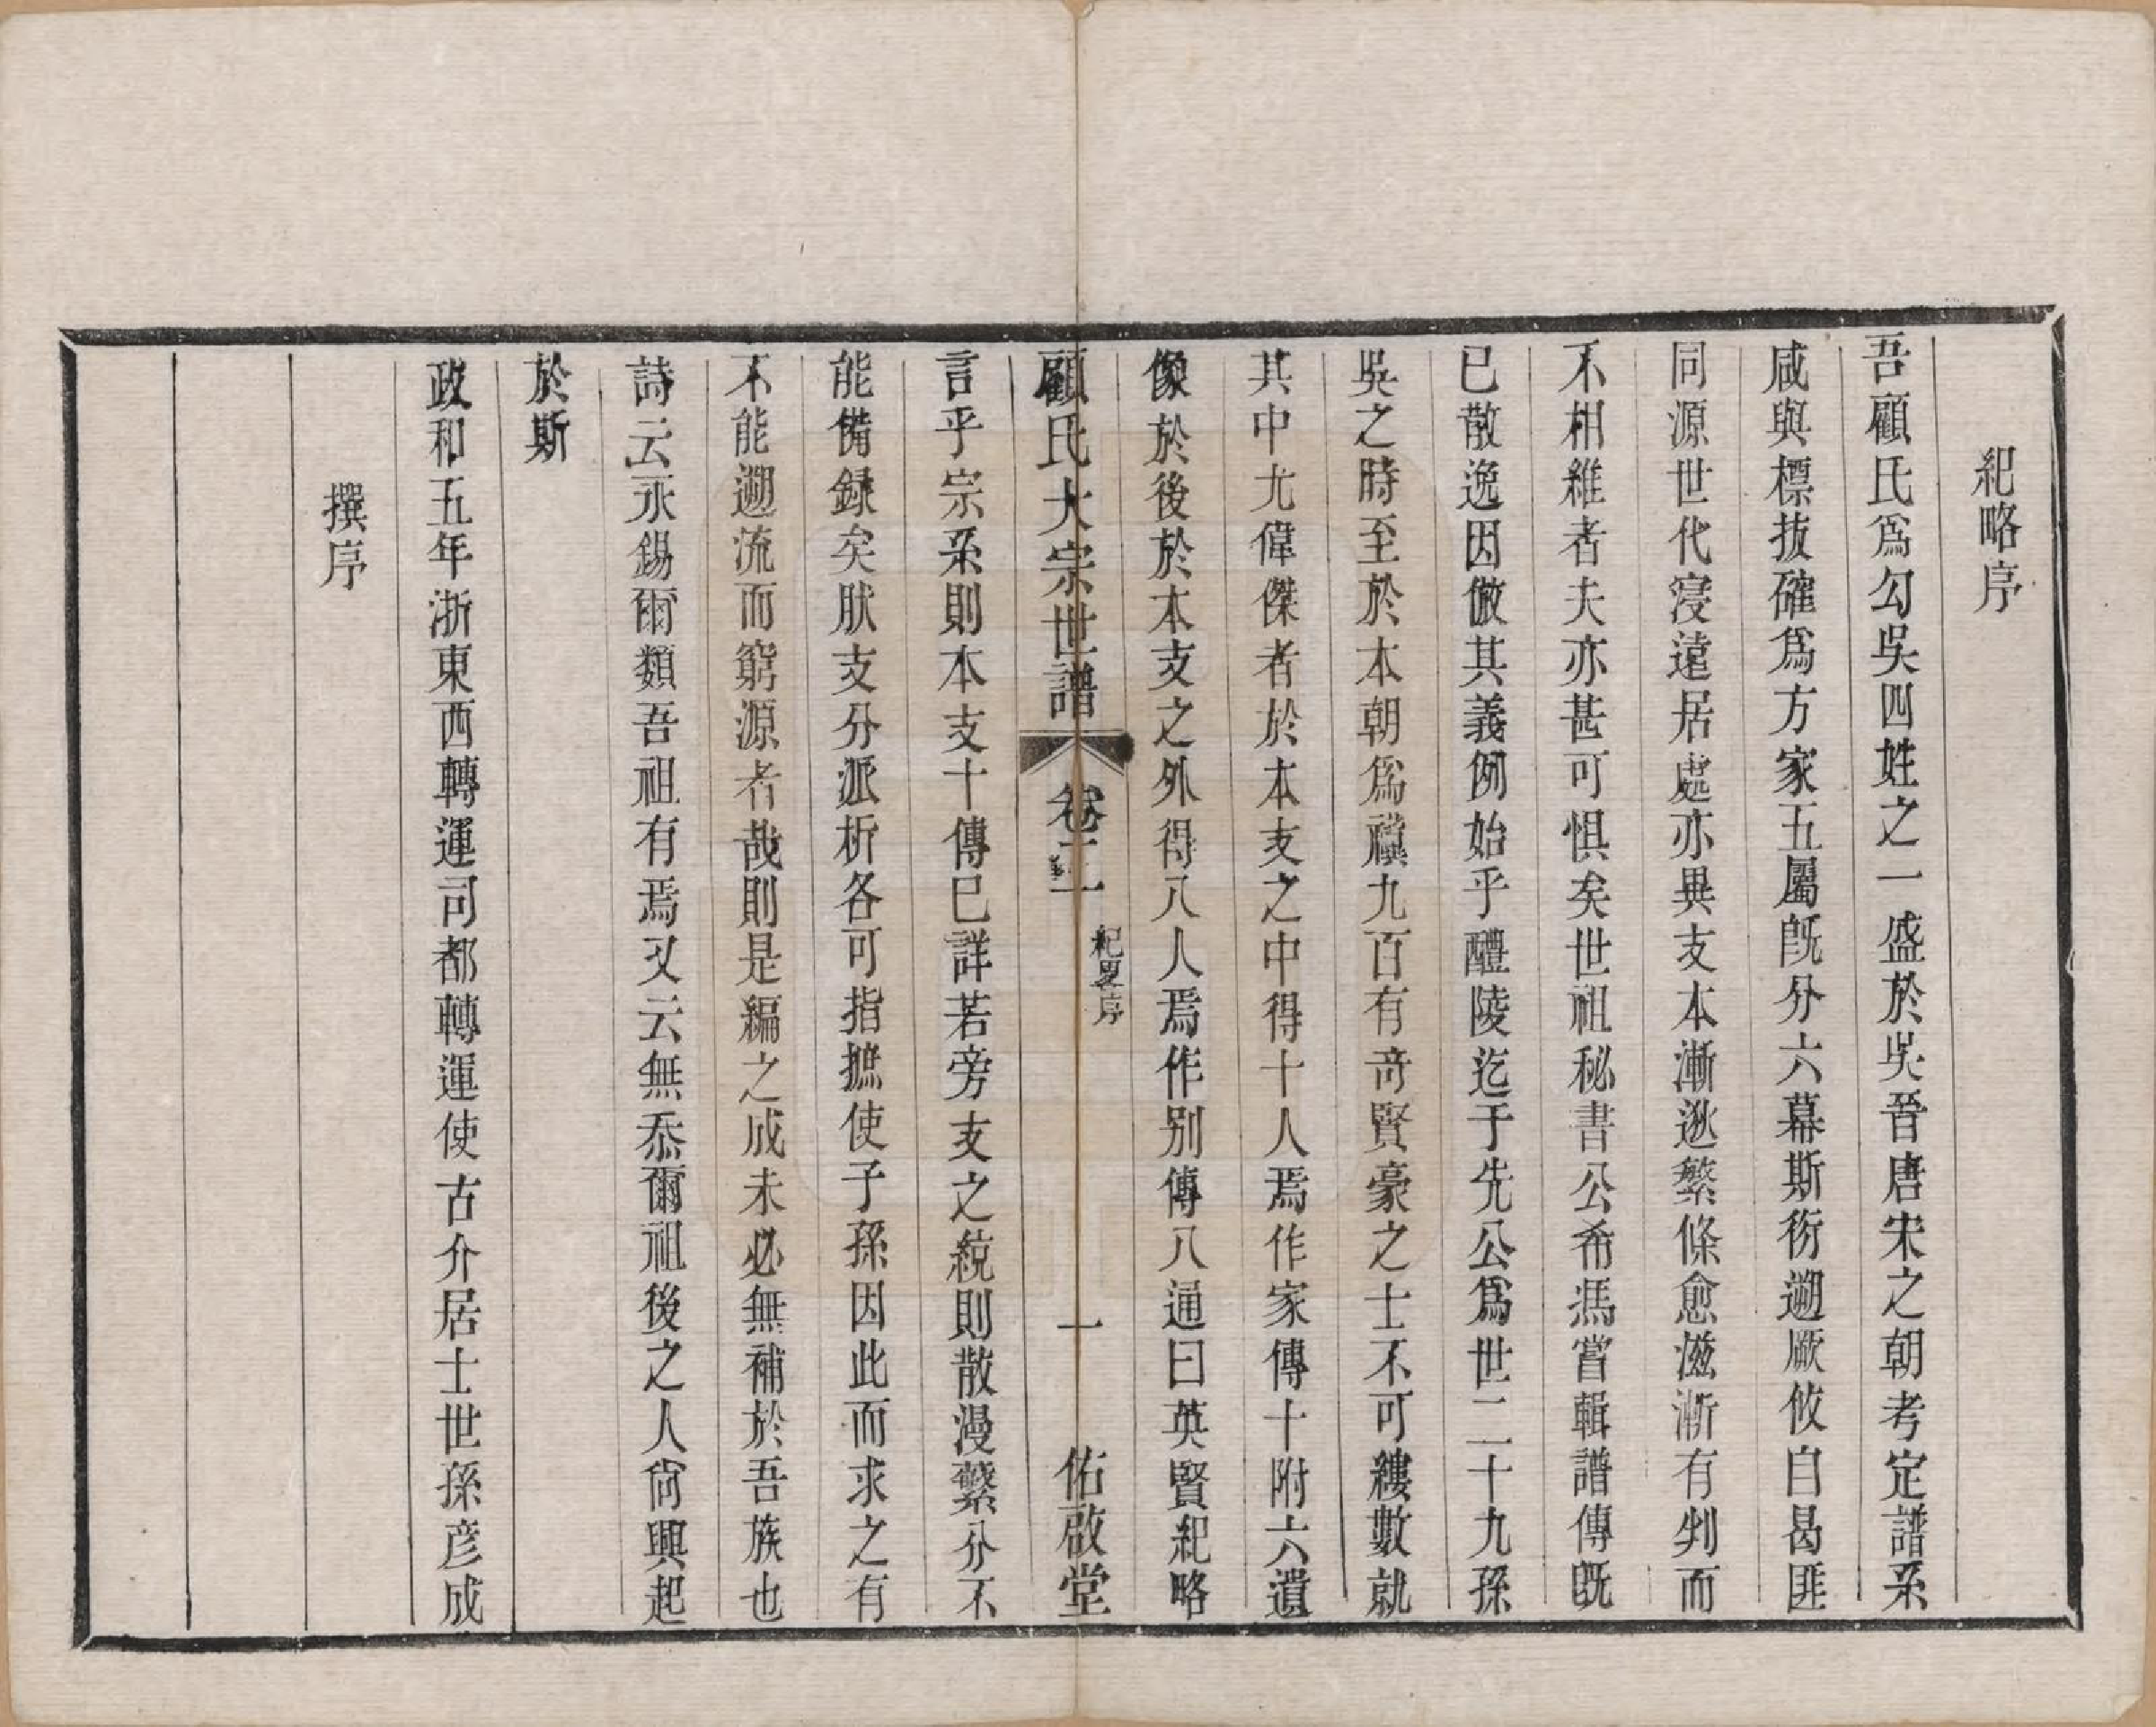 紀略序
吾顧氏爲勾吳四姓之一盛於吳晉唐宋之朝考定譜系
咸與標拔確爲方家五屬旣分六幕斯衍遡厥攸自曷匪
同源世代寖遠居處亦異支本漸逖繁條愈滋漸有判而
不相維者夫亦甚可惧矣世祖秘書公希馮嘗輯譜傳旣
已散逸因倣其義例始乎醴陵迄于先公爲世二十九孫
吳之時至於本朝爲禩九百有奇賢豪之士不可縷數就
其中尤偉傑者於本支之中得十人焉作家傳十附六遺
像於後於本支之外得八人焉作別傳八通曰英賢紀略
顧氏大宗世譜
卷二
紀畧序
一
佑啟堂
言乎宗系則本支十傳已詳若旁支之統則散漫蘩分不
能備録矣肰支分派析各可指摭使子孫因此而求之有
不能遡流而窮源者哉則是編之成未必無補於吾族也
詩云永錫爾類吾祖有焉又云無忝爾祖後之人尙興起
於斯
政和五年浙東西轉運司都轉運使古介居士世孫彦成
撰序